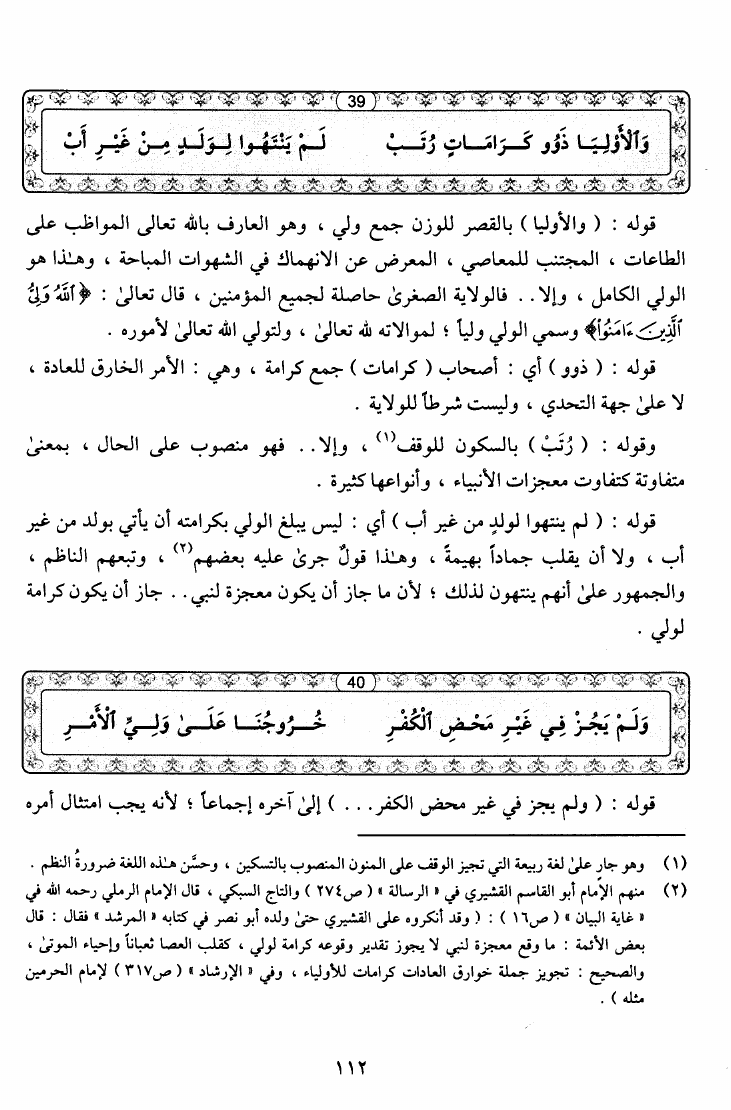 39
وَٱلْأَوْلِيَـا ذَوُو كَـرَامَـاتٍ رُتَـبْ لَـمْ يَنْتَهُوا لِوَلَـدٍ مِـنْ غَيْـرِ أَبْ
قوله : ( والأوليا ) بالقصر للوزن جمع ولي ، وهو العارف بالله تعالى المواظب على
الطاعات ، المجتنب للمعاصي ، المعرض عن الانهماك في الشهوات المباحة ، وهـٰذا هو
الولي الكامل ، وإلا . . فالولاية الصغرىٰ حاصلة لجميع المؤمنين ، قال تعالىٰ : ﴿ ٱللَّهُ وَلِيُّ
ٱلَّذِينَ ءَامَنُواْ﴾ وسمي الولي ولياً ؛ لموالاته لله تعالىٰ ، ولتولي الله تعالىٰ لأموره .
قوله : ( ذوو ) أي : أصحاب ( كرامات ) جمع كرامة ، وهي : الأمر الخارق للعادة ،
لا علىٰ جهة التحدي ، وليست شرطاً للولاية .
وقوله : ( رُتَبْ ) بالسكون للوقف(١) ، وإلا . . فهو منصوب على الحال ، بمعنىٰ
متفاوتة كتفاوت معجزات الأنبياء ، وأنواعها كثيرة .
قوله : ( لم ينتهوا لولدٍ من غير أب ) أي : ليس يبلغ الولي بكرامته أن يأتي بولد من غير
أب ، ولا أن يقلب جماداً بهيمةً ، وهـٰذا قولٌ جرىٰ عليه بعضهم(٢) ، وتبعهم الناظم ،
والجمهور علىٰ أنهم ينتهون لذلك ؛ لأن ما جاز أن يكون معجزة لنبي . . جاز أن يكون كرامة
لولي .
40
وَلَـمْ يَجُـزْ فِـي غَيْـرِ مَحْـضِ ٱلْكُفْـرِ خُـرُوجُنَـا عَلَـىٰ وَلِـيِّ ٱلْأَمْـرِ
قوله : ( ولم يجز في غير محض الكفر . . . ) إلىٰ آخره إجماعاً ؛ لأنه يجب امتثال أمره
(١) وهو جار علىٰ لغة ربيعة التي تجيز الوقف على المنون المنصوب بالتسكين ، وحسَّن هـٰذه اللغة ضرورةُ النظم .
(٢) منهم الإمام أبو القاسم القشيري في « الرسالة » ( ص٢٧٤ ) والتاج السبكي ، قال الإمام الرملي رحمه الله في
« غاية البيان » ( ص١٦ ) : ( وقد أنكروه على القشيري حتىٰ ولده أبو نصر في كتابه « المرشد » فقال : قال
بعض الأئمة : ما وقع معجزة لنبي لا يجوز تقدير وقوعه كرامة لولي ، كقلب العصا ثعباناً وإحياء الموتىٰ ،
والصحيح : تجويز جملة خوارق العادات كرامات للأولياء ، وفي « الإرشاد » ( ص٣١٧ ) لإمام الحرمين
مثله ) .
١١٢